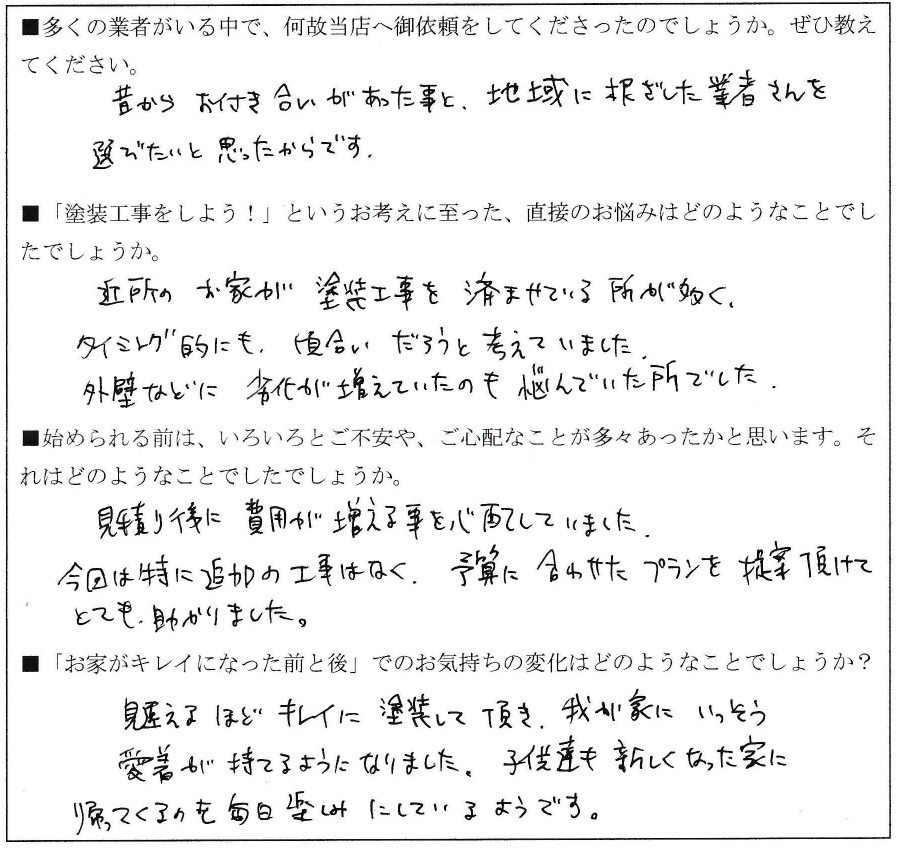 ■多くの業者がいる中で、何故当店へ御依頼をしてくださったのでしょうか。ぜひ教え
てください。
昔から お付き合いがあった事と、地域に根ざした業者さんを
選びたいと思ったからです。
■「塗装工事をしよう！」というお考えに至った、直接のお悩みはどのようなことでし
たでしょうか。
近所の お家が 塗装工事を 済ませている 所が多く、
タイミング的にも、頃合い だろうと 考えていました。
外壁などに 劣化が増えていたのも 悩んでいた所でした。
■始められる前は、いろいろとご不安や、ご心配なことが多々あったかと思います。そ
れはどのようなことでしたでしょうか。
見積り後に 費用が 増える事を心配していました。
今回は特に追加の工事はなく、予算に 合わせた プランを 提案頂けて
とても、助かりました。
■「お家がキレイになった前と後」でのお気持ちの変化はどのようなことでしょうか？
見違える ほど キレイに 塗装して 頂き、我が家に いっそう
愛着が 持てるようになりました。子供達も 新しくなった家に
帰ってくるのを毎日 楽しみ にしている ようです。